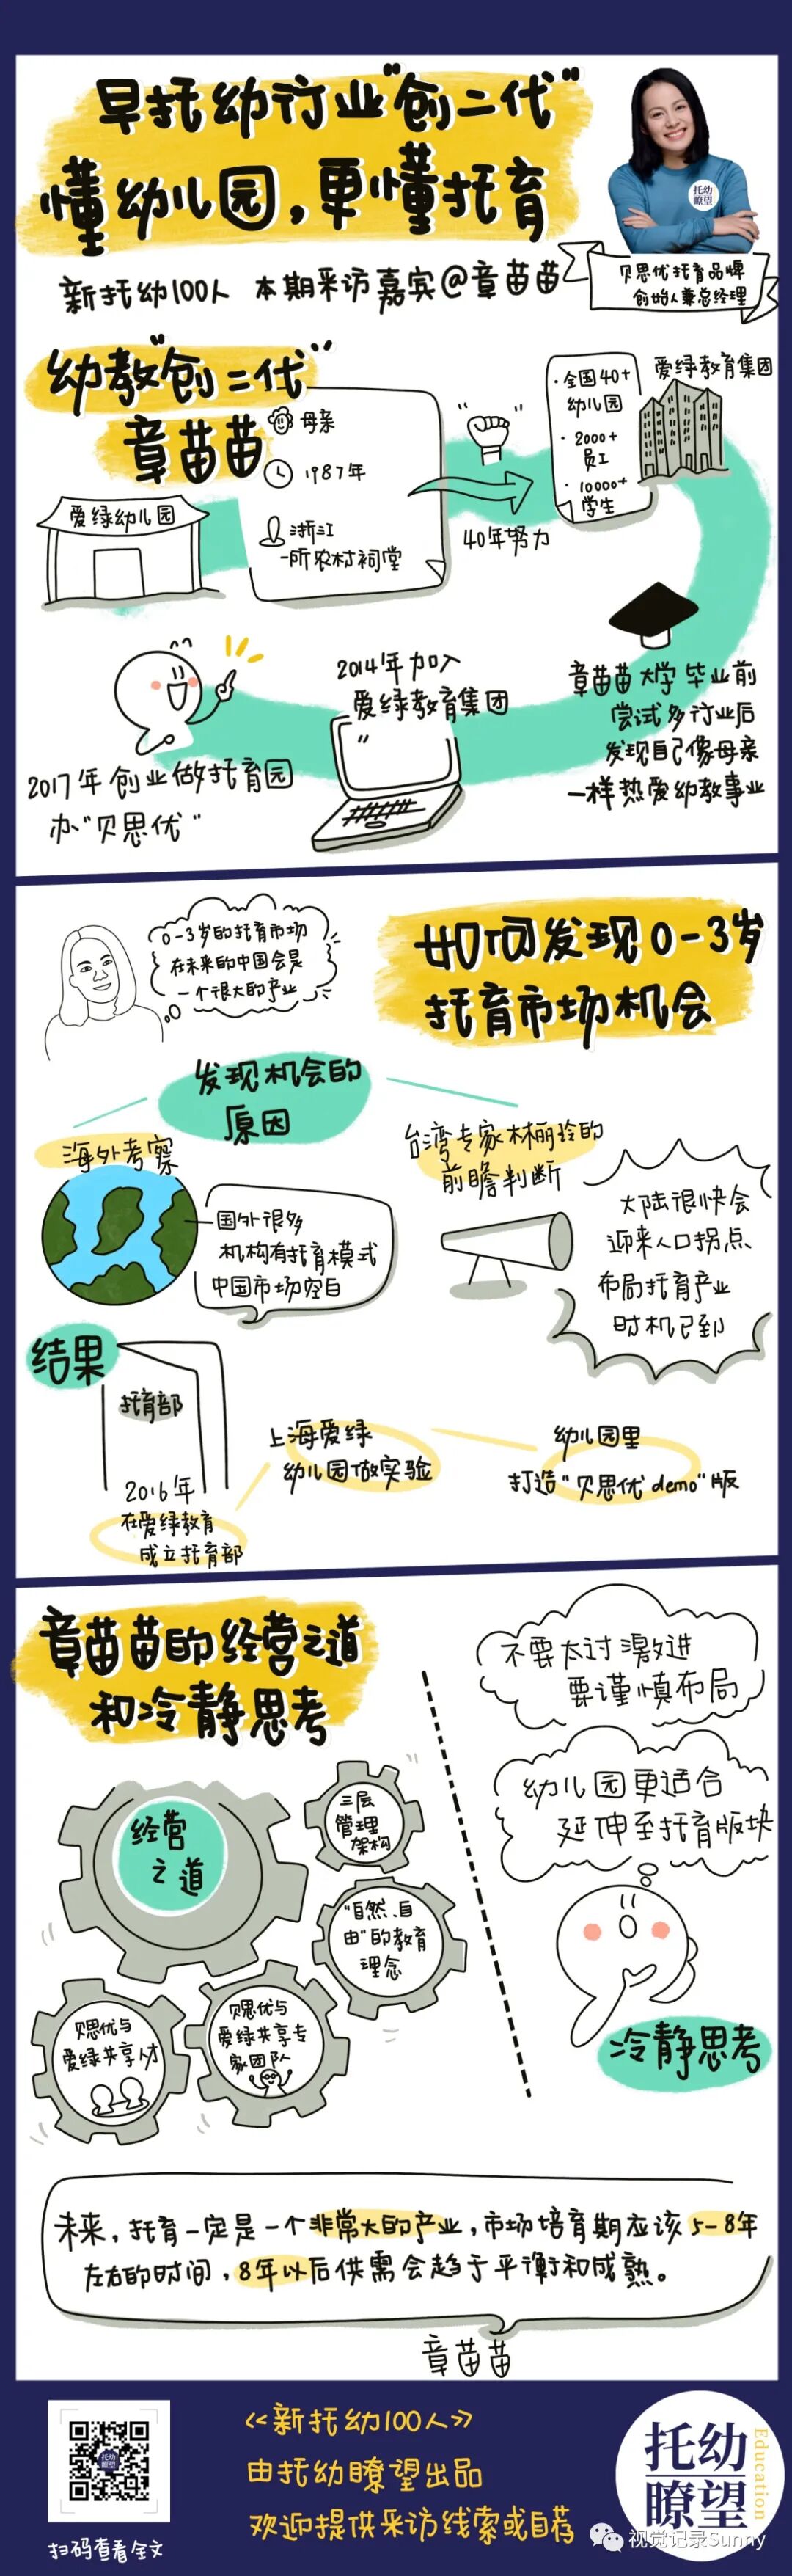 早托幼行业"创二代"
懂幼儿园,更懂托育
托幼
瞭望
新托幼100人 本期采访嘉宾@章苗苗
贝思优托育品牌
创始人兼总经理
幼教"创二代"
章苗苗
爱绿幼儿园
母亲
1987年
浙江
一所农村祠堂
40年努力
·全国40+
幼儿园
·2000+
员工
·10000+
学生
爱绿教育集团
章苗苗大学毕业前
尝试多行业后
发现自己像母亲
一样热爱幼教事业
2014年加入
爱绿教育集团
2017年创业做托育园
办"贝思优"
0-3岁的托育市场
在未来的中国会是
一个很大的产业
如何发现0-3岁
托育市场机会
发现机会的
原因
海外考察
国外很多
机构有托育模式
中国市场空白
台湾专家林丽玲的
前瞻判断
大陆很快会
迎来人口拐点
布局托育产业
时机已到
结果
托育部
2016年
在爱绿教育
成立托育部
上海爱绿
幼儿园做实验
幼儿园里
打造"贝思优demo"版
章苗苗的经营之道
和冷静思考
经营
之道
三层
管理
架构
"自然、自
由"的教育
理念
贝思优与
爱绿共享专
家团队
贝思优与
爱绿共享人才
不要太过激进
要谨慎布局
幼儿园更适合
延伸至托育版块
冷静思考
未来,托育一定是一个非常大的产业,市场培育期应该5-8年
左右的时间,8年以后供需会趋于平衡和成熟。
章苗苗
托幼
瞭望
扫码查看全文
《新托幼100人》
由托幼瞭望出品
欢迎提供采访线索或自荐
托幼
瞭望
Education
视觉记录Sunny